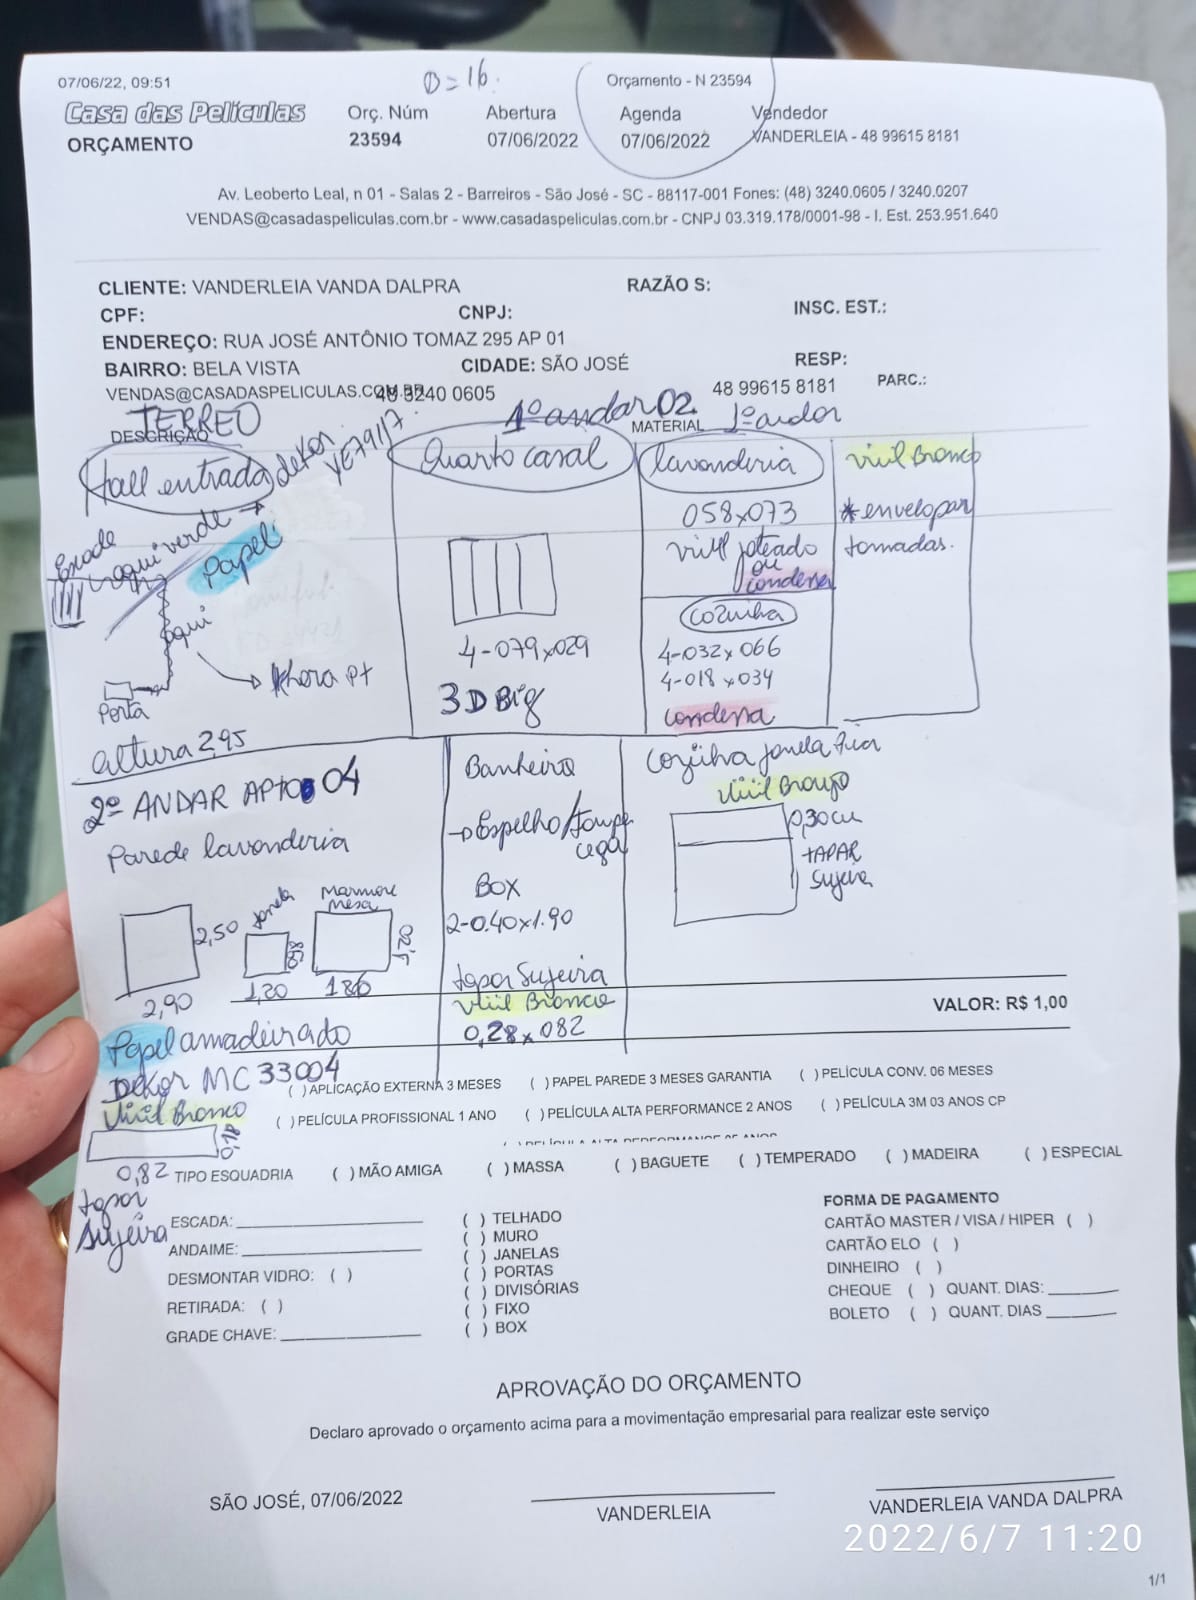 07/06/22, 09:51
Orçamento - N 23594
Casa das Películas
ORÇAMENTO
Orç. Núm
23594
Abertura
07/06/2022
Agenda
07/06/2022
Vendedor
VANDERLEIA - 48 99615 8181
Av. Leoberto Leal, n 01 - Salas 2 - Barreiros - São José - SC - 88117-001 Fones: (48) 3240.0605 / 3240.0207
VENDAS@casadaspeliculas.com.br - www.casadaspeliculas.com.br - CNPJ 03.319.178/0001-98 - I. Est. 253.951.640
CLIENTE: VANDERLEIA VANDA DALPRA
RAZÃO S:
CPF:
CNPJ:
INSC. EST.:
ENDEREÇO: RUA JOSÉ ANTÔNIO TOMAZ 295 AP 01
BAIRRO: BELA VISTA
CIDADE: SÃO JOSÉ
RESP:
VENDAS@CASADASPELICULAS.COM.BR
48 3240 0605
48 99615 8181
PARC.:
TERREO
DESCRIÇÃO
1º andar 02
MATERIAL
1º andar
Hall entrada
dekor
YE79117
aqui verde
Papel
aqui
Porta
altura 2,95
Quarto casal
4-079x029
3D Big
lavanderia
058x073
vinil jateado
ou
condessa
cozinha
4-032x066
4-018x034
condessa
vinil Branco
* envelopar
tomadas.
2º ANDAR APTO 04
Parede lavanderia
2,50
2,90
Janela
1,20
Marmore
mesa
Papel amadeirado
Dekor MC 33004
Vinil Branco
0,18
0,82
tapar
sujeira
Banheiro
Espelho
BOX
2-0.40x1.90
tapar Sujeira
Vinil Branco
0,28x082
cozinha janela
0,30cm
TAPAR
Sujeira
VALOR: R$ 1,00
( ) APLICAÇÃO EXTERNA 3 MESES ( ) PAPEL PAREDE 3 MESES GARANTIA ( ) PELÍCULA CONV. 06 MESES
( ) PELÍCULA PROFISSIONAL 1 ANO ( ) PELÍCULA ALTA PERFORMANCE 2 ANOS ( ) PELÍCULA 3M 03 ANOS CP
TIPO ESQUADRIA ( ) MÃO AMIGA ( ) MASSA ( ) BAGUETE ( ) TEMPERADO ( ) MADEIRA ( ) ESPECIAL
ESCADA:
ANDAIME:
DESMONTAR VIDRO: ( )
RETIRADA: ( )
GRADE CHAVE:
( ) TELHADO
( ) MURO
( ) JANELAS
( ) PORTAS
( ) DIVISÓRIAS
( ) FIXO
( ) BOX
FORMA DE PAGAMENTO
CARTÃO MASTER / VISA / HIPER ( )
CARTÃO ELO ( )
DINHEIRO ( )
CHEQUE ( ) QUANT. DIAS:
BOLETO ( ) QUANT. DIAS
APROVAÇÃO DO ORÇAMENTO
Declaro aprovado o orçamento acima para a movimentação empresarial para realizar este serviço
SÃO JOSÉ, 07/06/2022
VANDERLEIA
VANDERLEIA VANDA DALPRA
2022/6/7 11:20
1/1